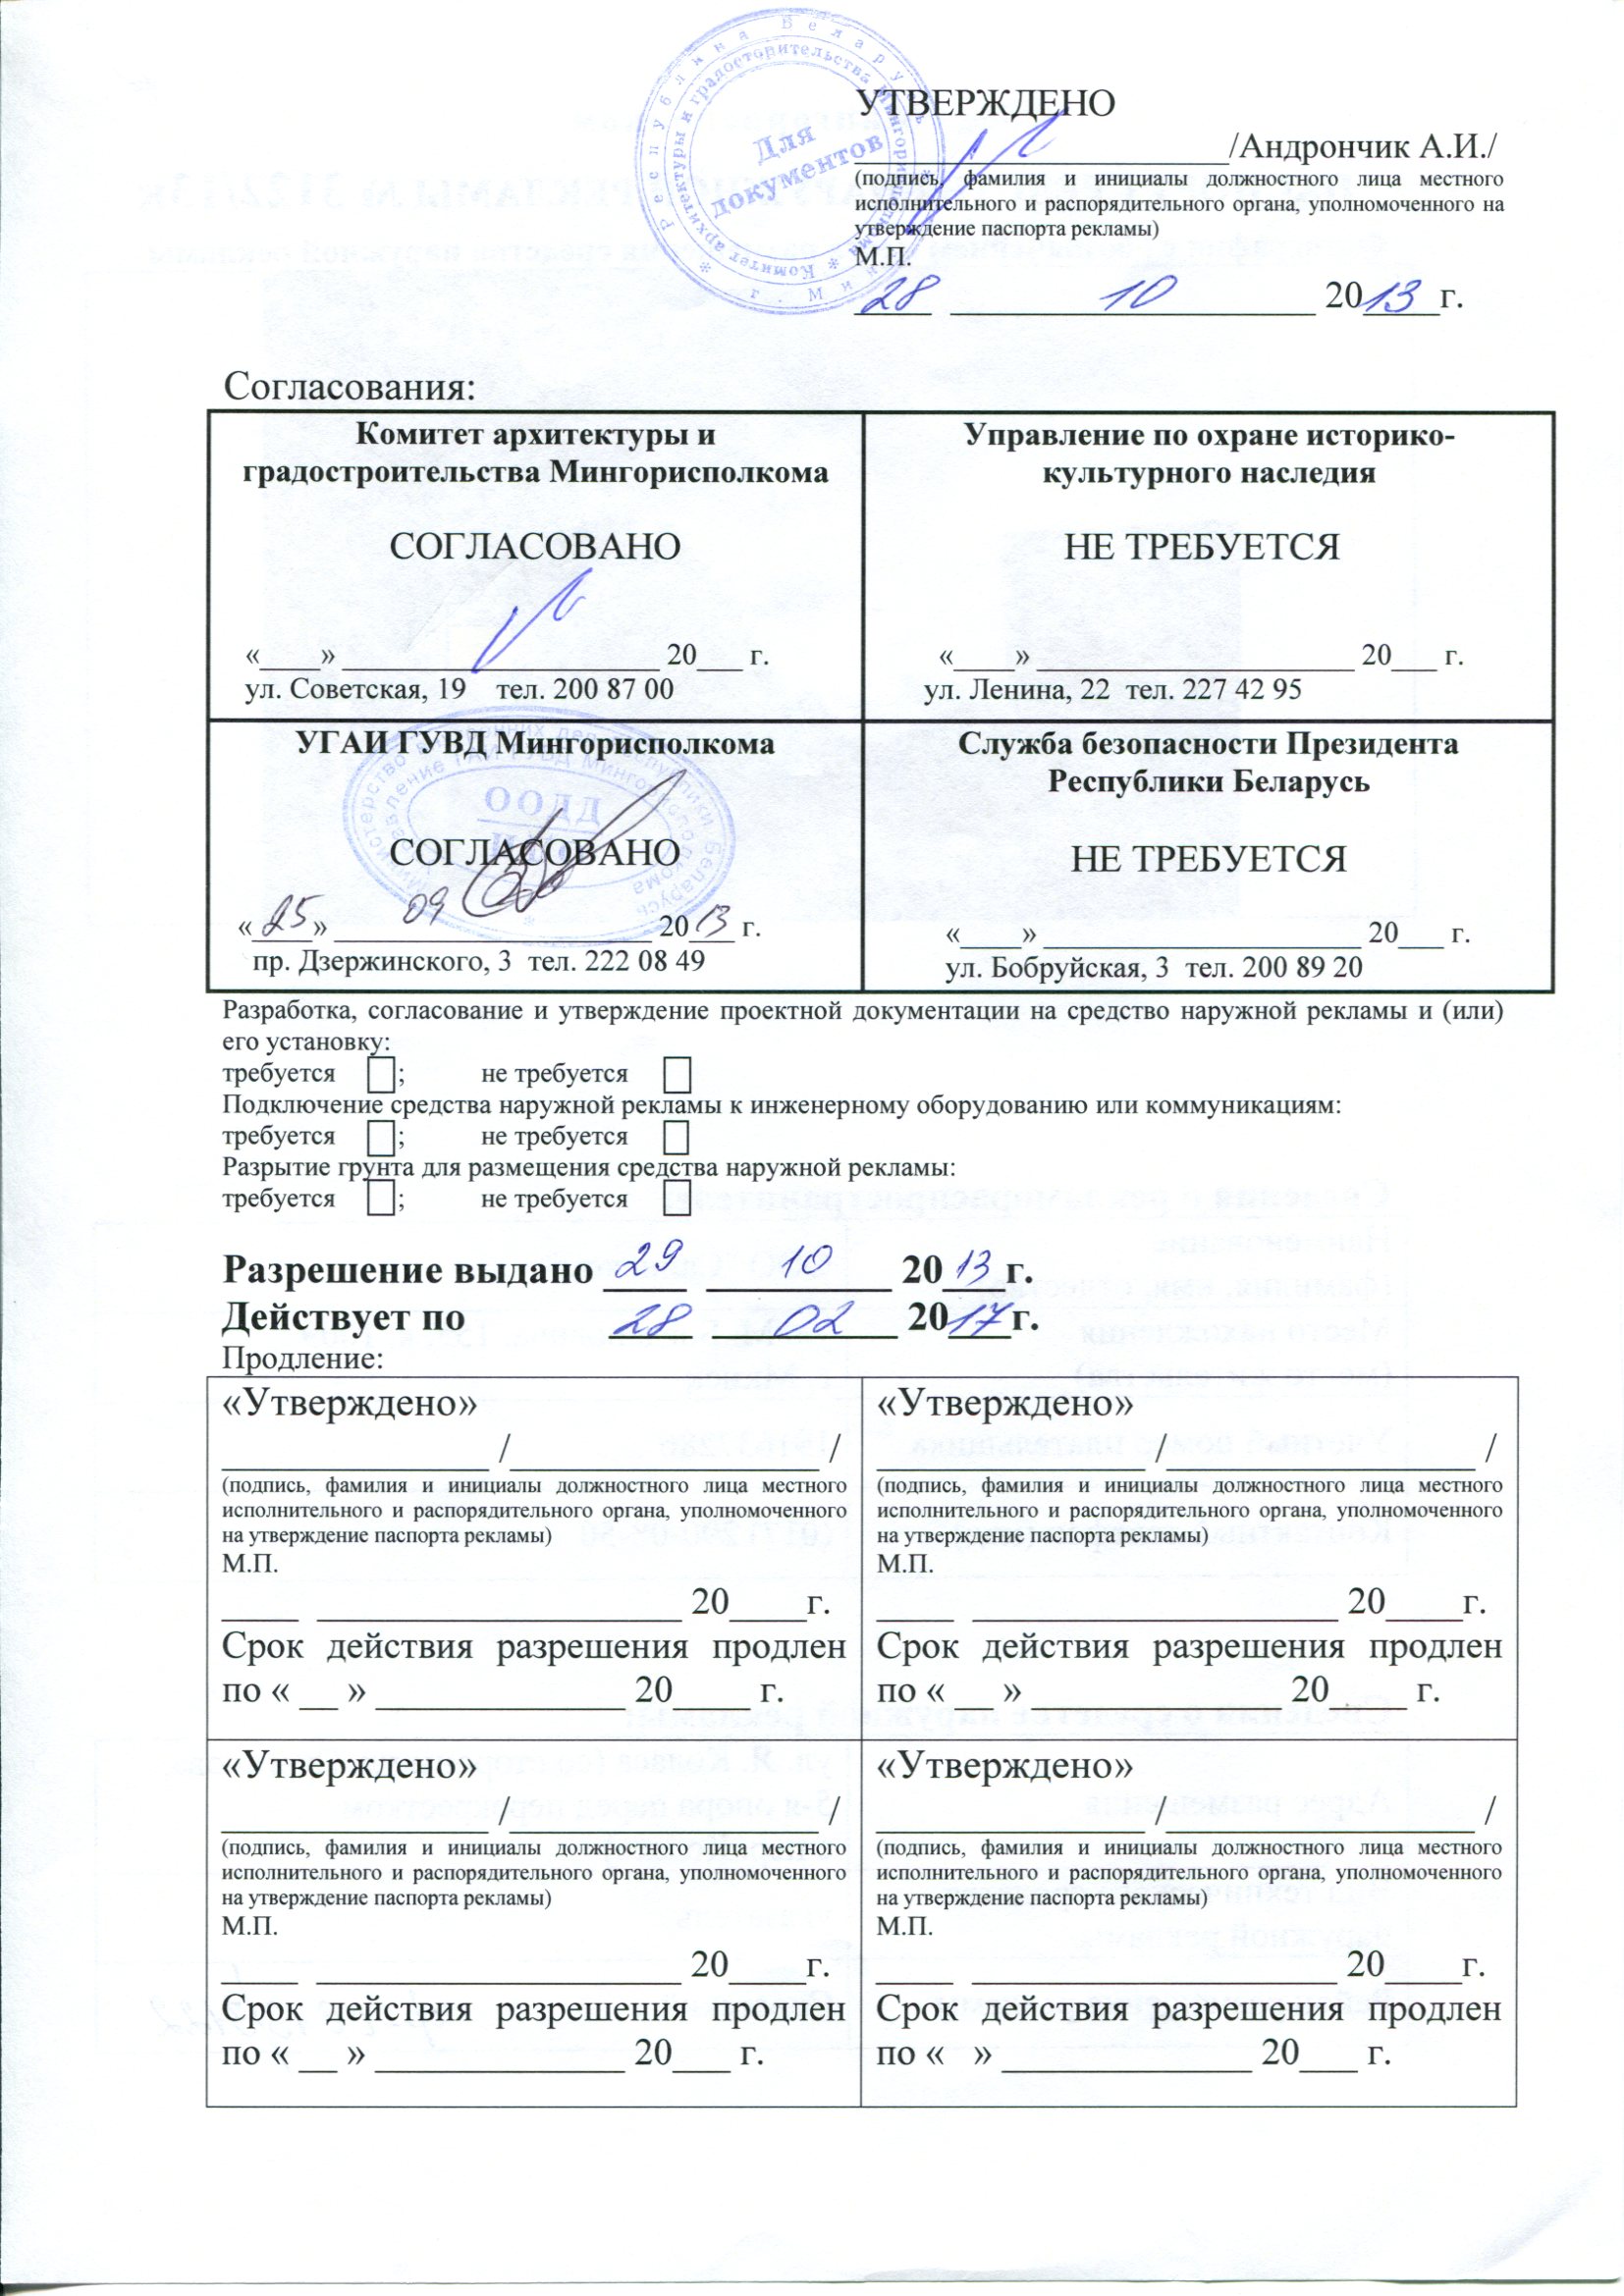 УТВЕРЖДЕНО
/Андрончик А.И./
(подпись, фамилия и инициалы должностного лица местного
исполнительного и распорядительного органа, уполномоченного на
утверждение паспорта рекламы)
М.П.
28 10 2013 г.
Республика Беларусь
г. Минск
Комитет архитектуры и градостроительства Мингорисполкома
Для
документов
Согласования:
Комитет архитектуры и
градостроительства Мингорисполкома
СОГЛАСОВАНО
«____» ____________________ 20___ г.
ул. Советская, 19 тел. 200 87 00
Управление по охране историко-
культурного наследия
НЕ ТРЕБУЕТСЯ
«____» ____________________ 20___ г.
ул. Ленина, 22 тел. 227 42 95
УГАИ ГУВД Мингорисполкома
ООДД
СОГЛАСОВАНО
«25» 09 2013 г.
пр. Дзержинского, 3 тел. 222 08 49
Служба безопасности Президента
Республики Беларусь
НЕ ТРЕБУЕТСЯ
«____» ____________________ 20___ г.
ул. Бобруйская, 3 тел. 200 89 20
Разработка, согласование и утверждение проектной документации на средство наружной рекламы и (или)
его установку:
требуется ; не требуется
Подключение средства наружной рекламы к инженерному оборудованию или коммуникациям:
требуется ; не требуется
Разрытие грунта для размещения средства наружной рекламы:
требуется ; не требуется
Разрешение выдано 29 10 2013 г.
Действует по 28 02 2017г.
Продление:
«Утверждено»
______________ /________________ /
(подпись, фамилия и инициалы должностного лица местного
исполнительного и распорядительного органа, уполномоченного
на утверждение паспорта рекламы)
М.П.
____ ___________________ 20____г.
Срок действия разрешения продлен
по « __ » _____________ 20____ г.
«Утверждено»
______________ /________________ /
(подпись, фамилия и инициалы должностного лица местного
исполнительного и распорядительного органа, уполномоченного
на утверждение паспорта рекламы)
М.П.
____ ___________________ 20____г.
Срок действия разрешения продлен
по « __ » _____________ 20____ г.
«Утверждено»
______________ /________________ /
(подпись, фамилия и инициалы должностного лица местного
исполнительного и распорядительного органа, уполномоченного
на утверждение паспорта рекламы)
М.П.
____ ___________________ 20____г.
Срок действия разрешения продлен
по « __ » _____________ 20___ г.
«Утверждено»
______________ /________________ /
(подпись, фамилия и инициалы должностного лица местного
исполнительного и распорядительного органа, уполномоченного
на утверждение паспорта рекламы)
М.П.
____ ___________________ 20____г.
Срок действия разрешения продлен
по « » _____________ 20___ г.